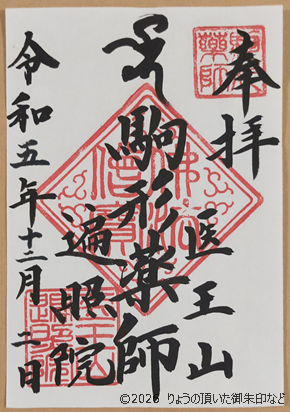 奉拝
医王山
駒形薬師
遍照院
令和五年十二月二日
©2026 りょうの頂いた御朱印など